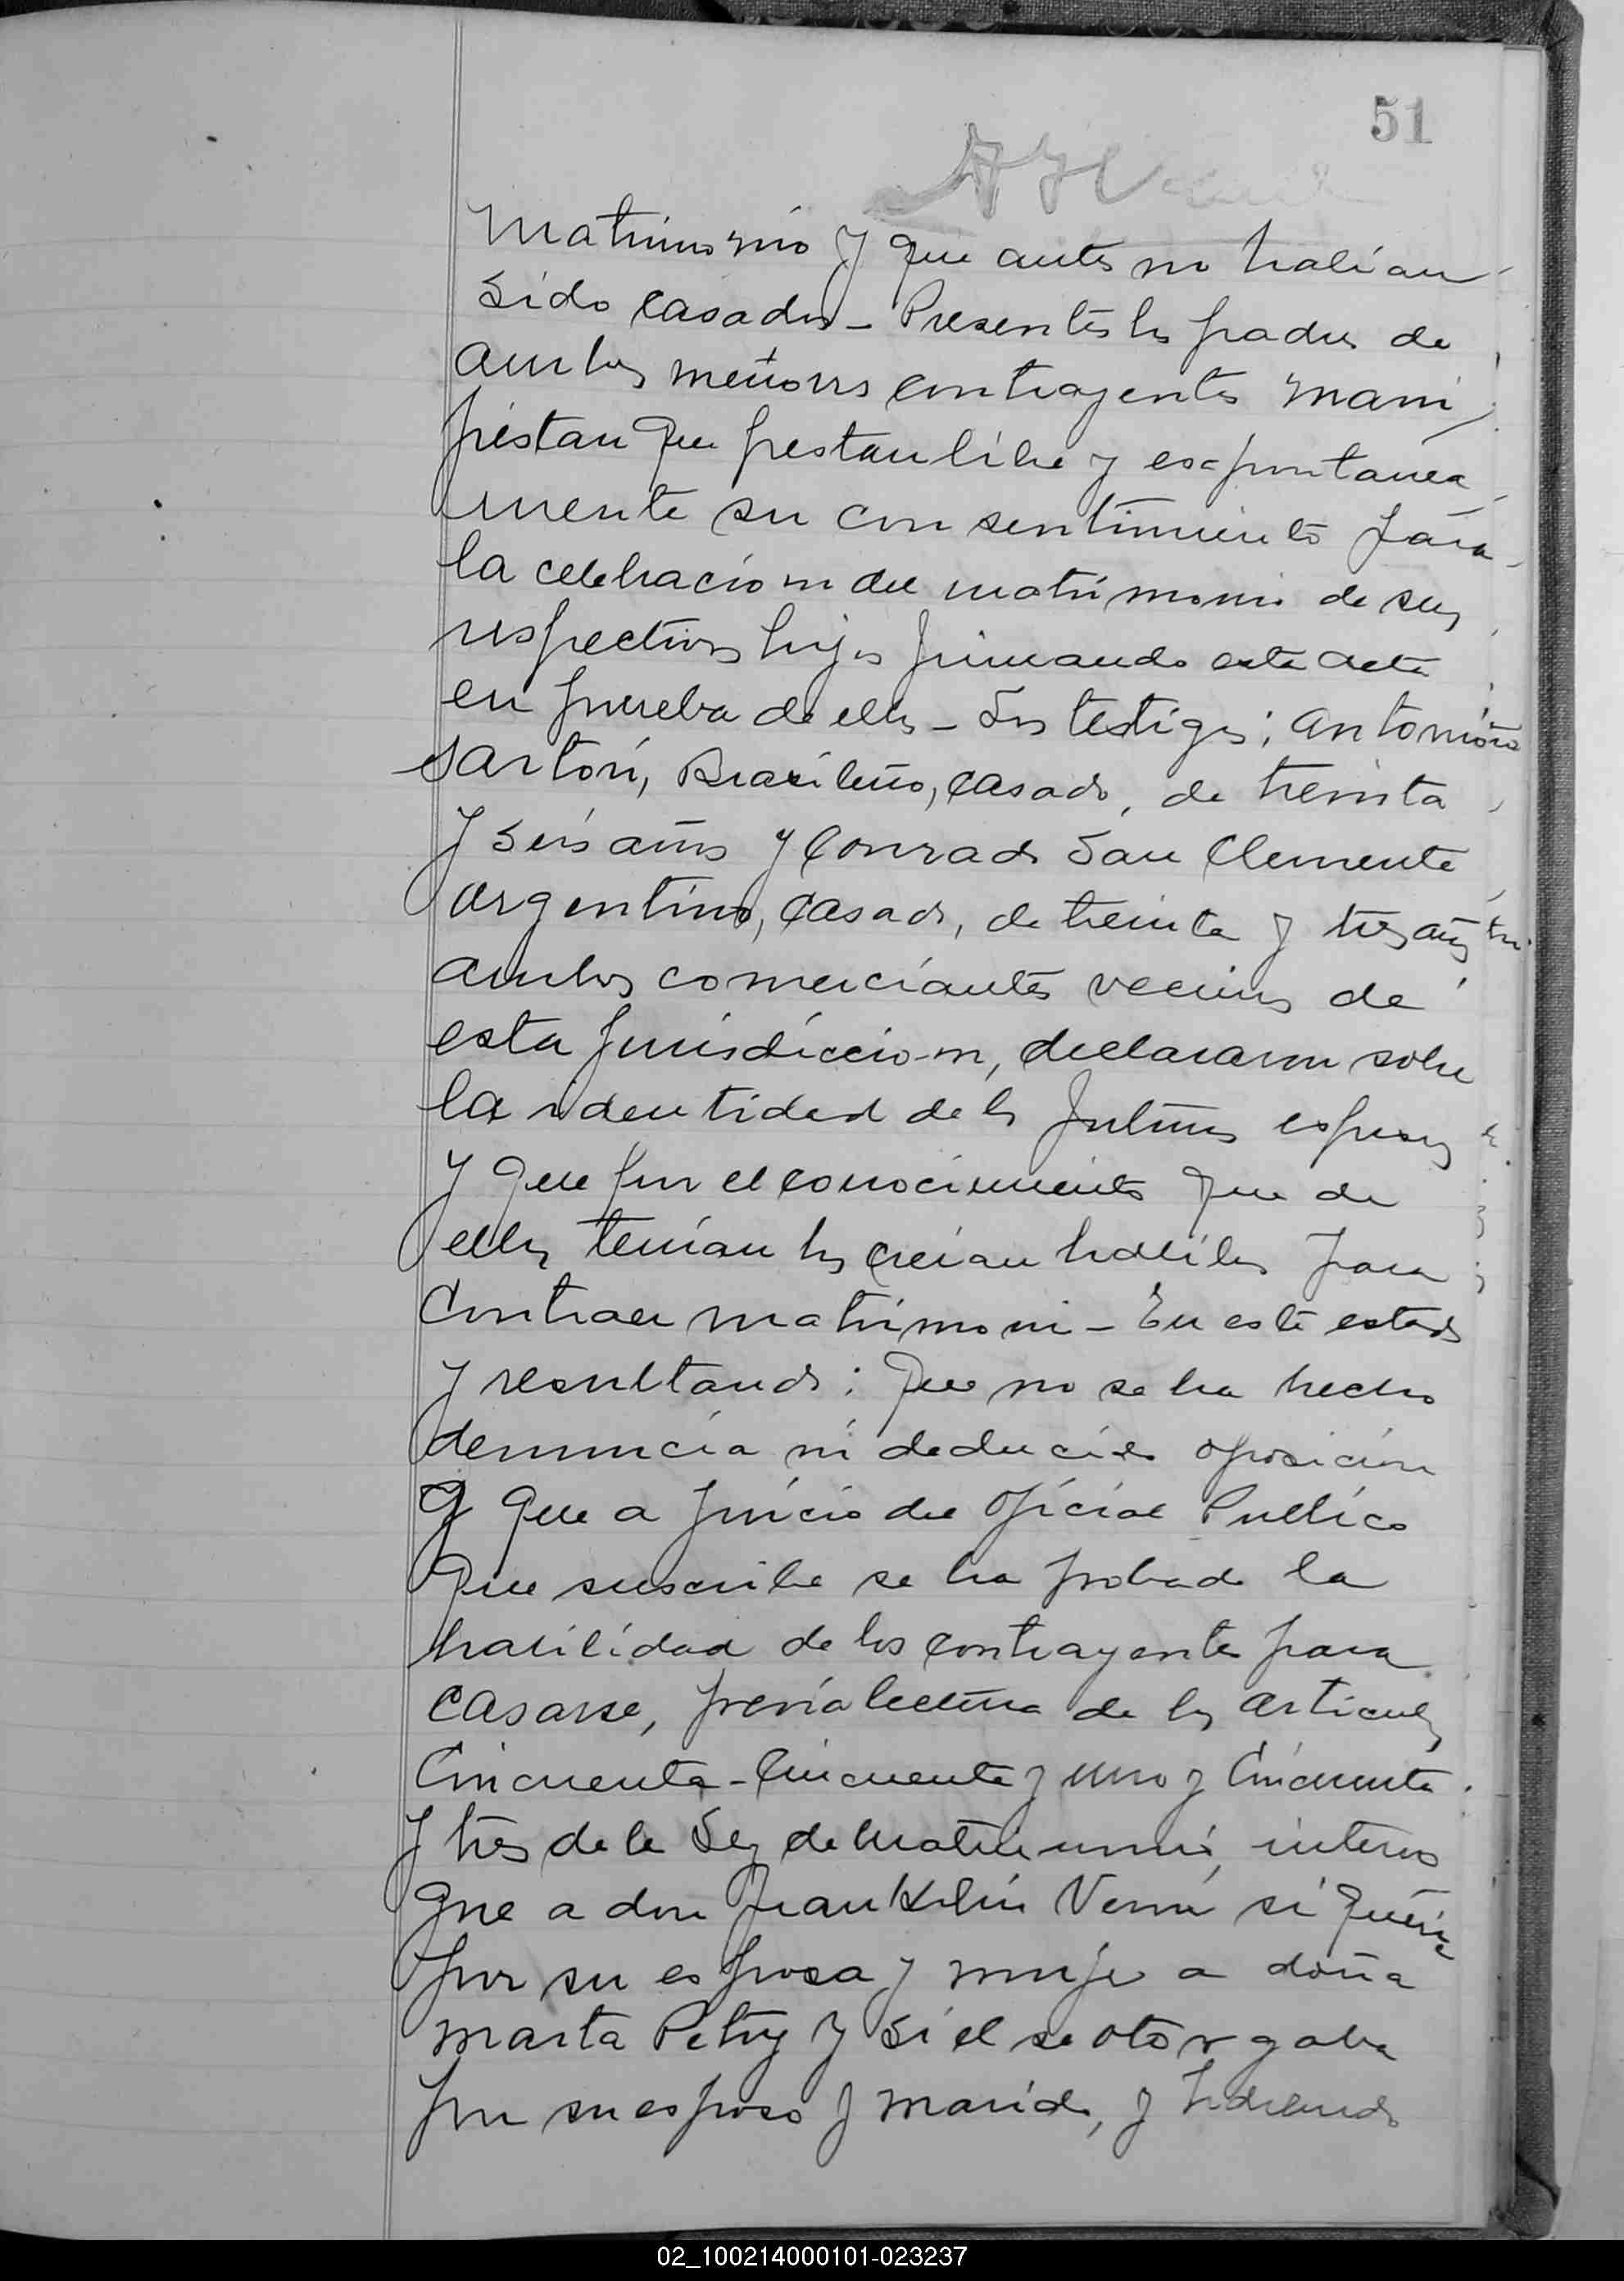 51
Matrimonio y que antes no habian
sido casados - Presentes los padres de
ambos menores contrayentes mani
fiestan que prestan libre y espontanea
mente su consentimiento para
la celebracion del matrimonio de sus
respectivos hijos firmando este acta
en prueba de ello - Los testigos; Antonio
Sartori, Brasileño, casado, de treinta
y seis años y Conrado San Clemente
argentino, casado, de treinta y tres años
ambos comerciantes vecinos de
esta Jurisdiccio-n, declararon sobre
la identidad de los futuros esposos
y que por el conocimiento que de
ellos tenían los creian habiles para
Contraer matrimonio - En este estado
y resultando: Que no se ha hecho
denuncia ni deducido oposición
y que a juicio del oficial Publico
que suscribe se ha probado la
habilidad de los contrayentes para
casarse, previa lectura de los articulos
Cincuenta - Cincuenta y uno y Cincuenta
y tres de la Ley de Matrimonio, interro
gue a don Franklin Venni si queria
por su esposa y mujer a doña
Marta Petry y si el se otorgaba
por su esposo y marido, y habiendo
02_100214000101-023237